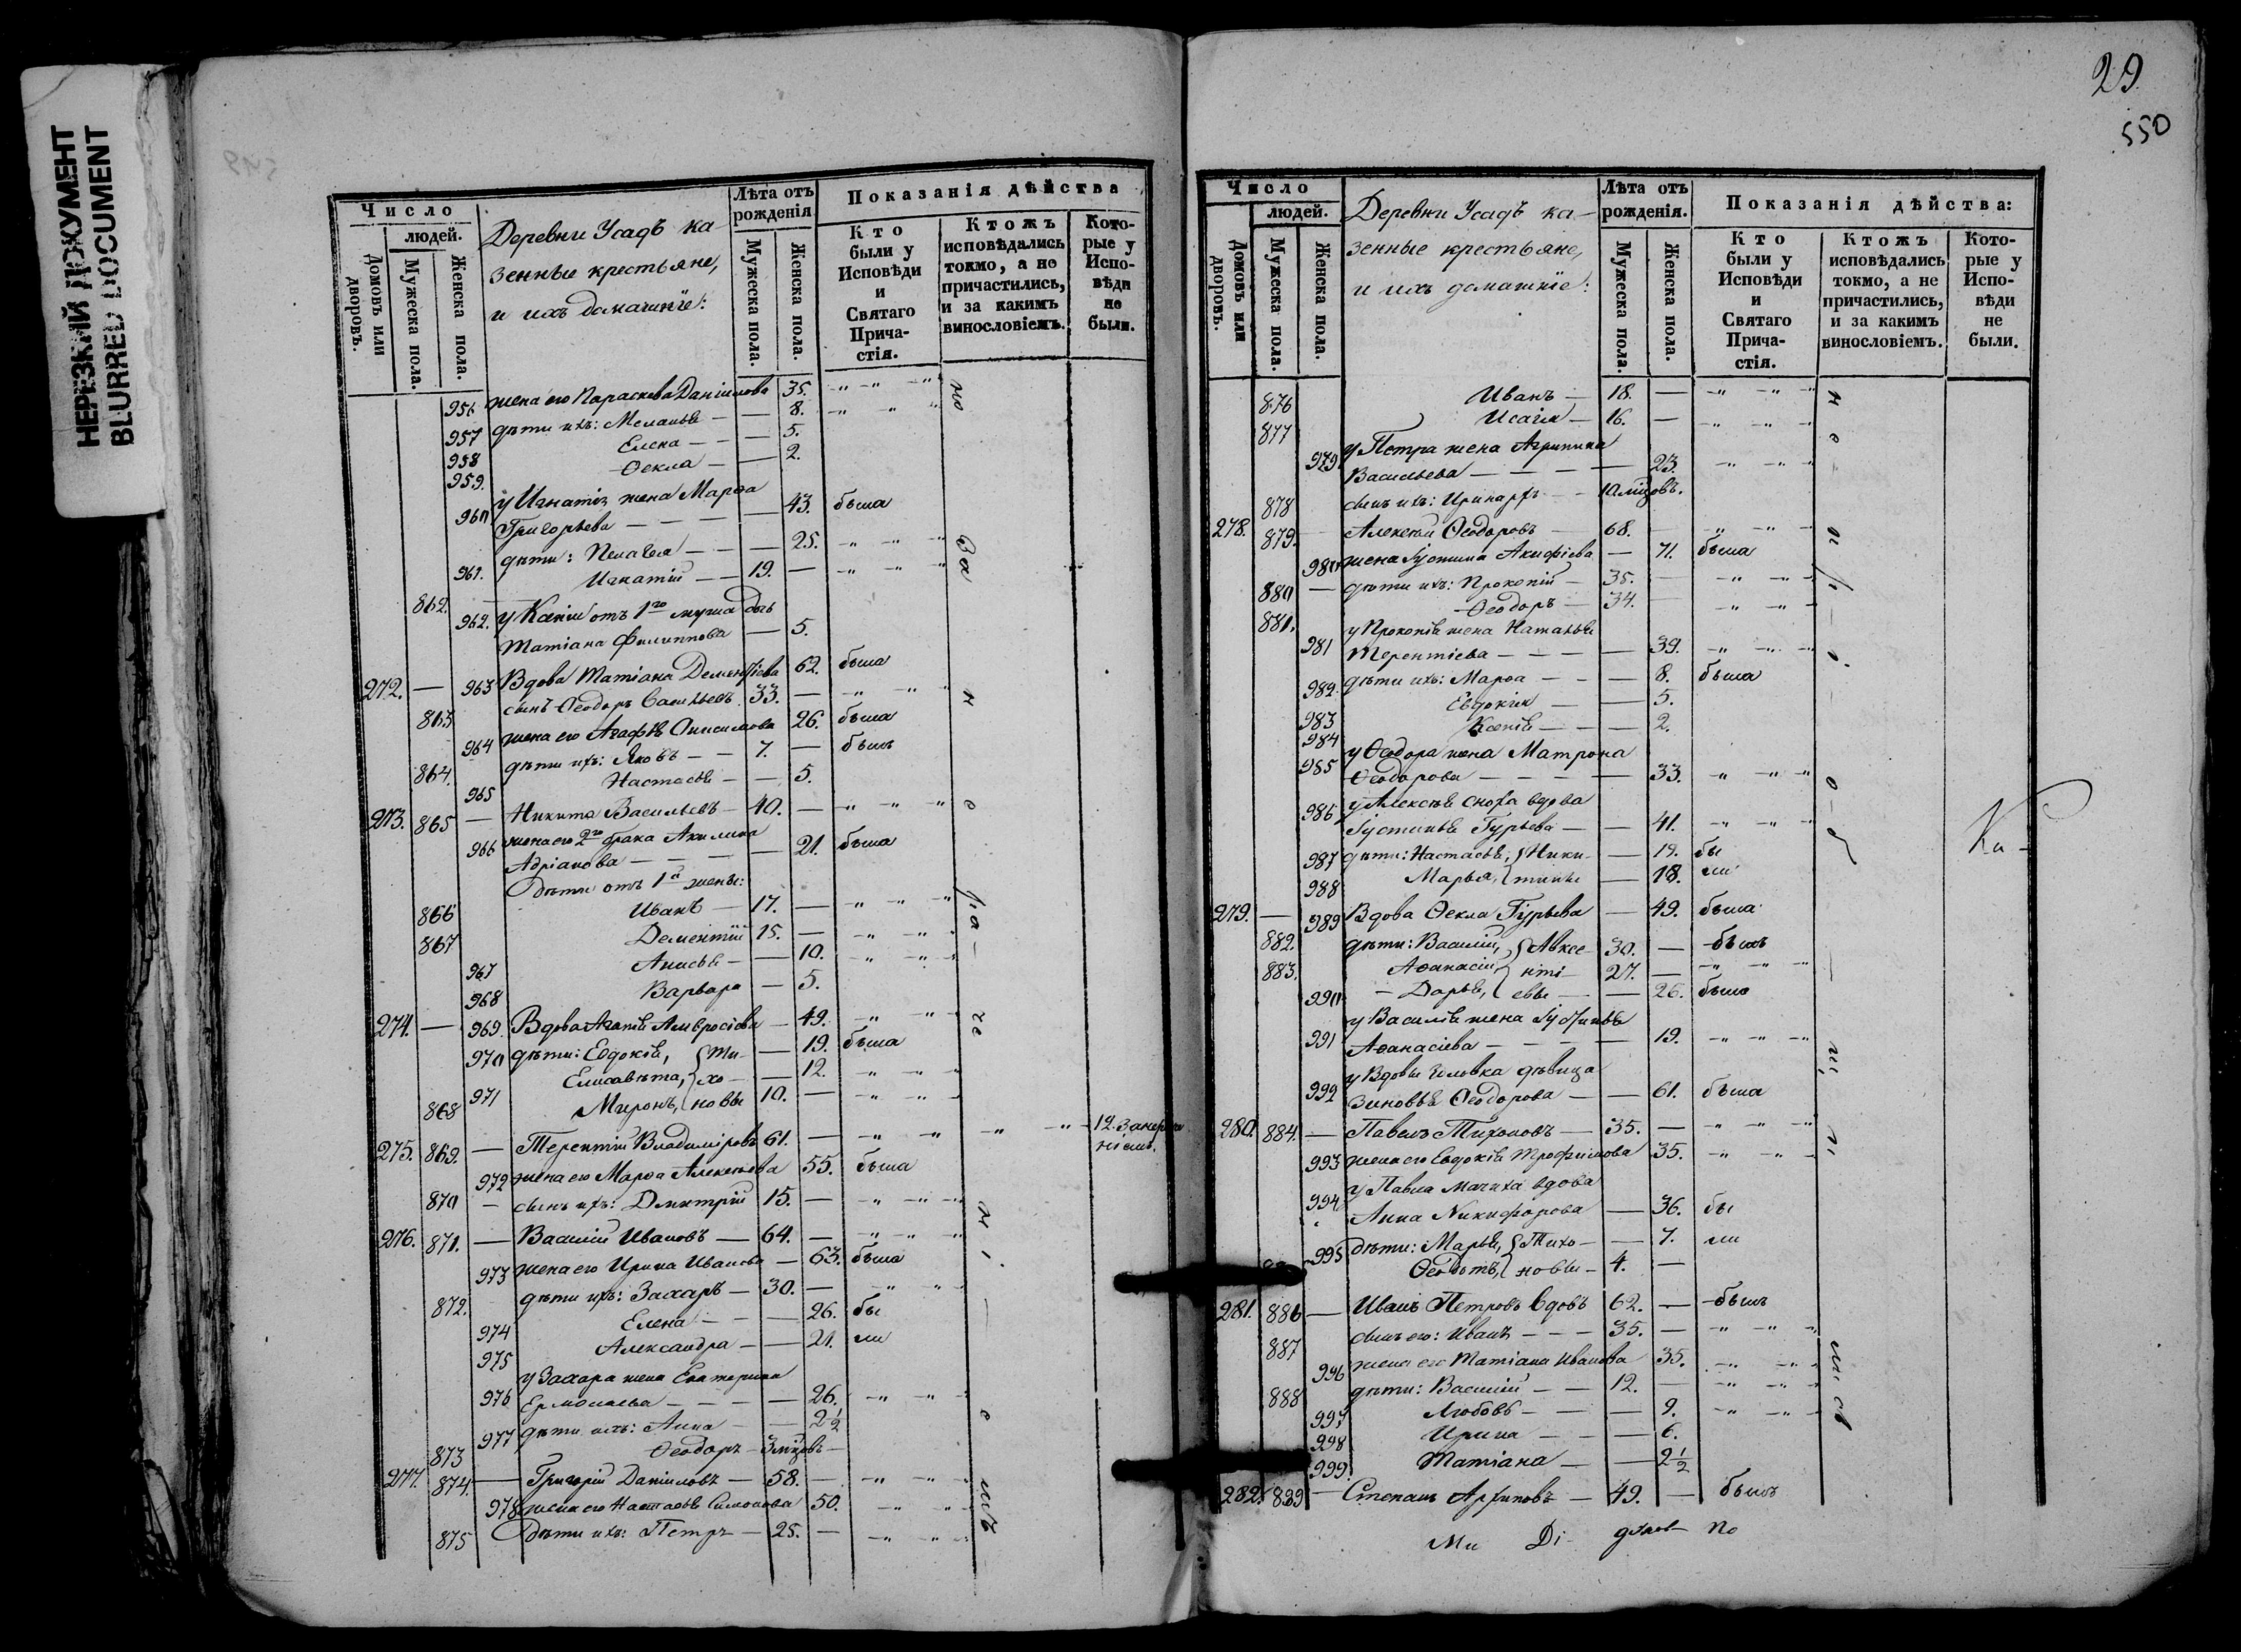 НЕРЕЗКИЙ ДОКУМЕНТ
BLURRED DOCUMENT
Число
людей.
Домовъ или дворовъ.
Мужеска пола.
Женска пола.
Деревни Усадъ ка-
зенные крестьяне,
и ихъ домашніе:
Лѣта отъ рожденія
Мужеска пола.
Женска пола.
Показанія дѣйства
Кто были у Исповѣди и Святаго Прича-стія.
Ктожъ исповѣдались токмо, а не причастились, и за какимъ винословіемъ.
Кото-рые у Испо-вѣди не были.
956 жена его Параскева Даніилова 35.
957 дѣти ихъ: Меланья — — 8.
958 Елена — — — 5.
959. Ѳекла — — 2.
960 у Игнатія жена Марѳа
Григорьева — — — — 43. была
961. дѣти: Пелагея — — — 25.
862. Игнатій — — 19. —
962. у Ксеніи отъ 1го мужа дочь
Татіана Филиппова — 5.
272. — 963 Вдова Татіана Дементіева 62. была
863 сынъ Ѳеодоръ Васильевъ 33. —
964 жена его Агафья Анисимова 26. была
864. дѣти ихъ: Яковъ — 7. — былъ
965 Настасья — — 5.
273. 865 — Никита Васильевъ — 40. —
966 жена его 2го брака Акилина
Адріанова — — — — 21. была
Дѣти отъ 1й жены:
866 Иванъ — 17. —
867 Дементій 15. —
967 Анисья — — 10.
968 Варвара — 5.
274. — 969. Вдова Агапія Амвросіева — 49.
970 дѣти: Евдокія, Ти- — 19. была
971 Елисавета, хо- — 12.
868 Миронъ, новы 10. —
275. 869. — Терентій Владиміровъ 61. — 12. За
972 жена его Марѳа Алексѣева 55. была
870 — сынъ ихъ: Дмитрій 15. —
276. 871. — Василій Ивановъ — 64. —
973 жена его Ирина Иванова — 63. была
872. дѣти ихъ: Захаръ — 30. —
974 Елена — — — 26. бы
975 Александра — — 21. ли
у Захара жена Екатерина
976 Ермолаева — — — — 26.
977 дѣти ихъ: Анна — — 2½
873 Ѳеодоръ — 3 мцовъ —
277. 874. — Григорій Даніиловъ — 58. —
978 жена его Настасья Симонова 50.
875 Дѣти ихъ: Петръ — 25. —
29
550
Число
людей.
Домовъ или дворовъ.
Мужеска пола.
Женска пола.
Деревни Усадъ ка-
зенные крестьяне,
и ихъ домашніе:
Лѣта отъ рожденія.
Мужеска пола.
Женска пола.
Показанія дѣйства:
Кто были у Исповѣди и Святаго Прича-стія.
Ктожъ исповѣдались токмо, а не причастились, и за какимъ винословіемъ.
Кото-рые у Испо-вѣди не были.
876 Иванъ — 18. —
877 Исаія — 16. —
979 у Петра жена Агрипина
Васильева — — — — 23.
878 сынъ ихъ: Иринархъ — 10 мцовъ.
278. 879. — Алексѣй Ѳеодоровъ 68.
980 жена Іустина Акифіева — 71. была
880 — дѣти ихъ: Прокопій — 35. —
881. Ѳеодоръ — 34. —
981 у Прокопія жена Наталья
Терентіева — — — — 39.
982. дѣти ихъ: Марѳа — — — 8. была
983 Евдокія — — 5.
984 Ксенія — — — 2.
985 у Ѳеодора жена Матрона
Ѳеодорова — — — — 33.
986 у Алексѣя сноха вдова
Іустинья Гурьева — — 41.
987 дѣти: Настасья, Ники- — 19. бы
988 Марья, тины — 18. ли
279. — 989 Вдова Ѳекла Гурьева — 49. была
882. дѣти: Василій, Авксе- 30. — былъ
883. Аѳанасій, нті- 27. —
990 Дарья, евы — — 26. была
991 у Василія жена Іустинья
Аѳанасіева — — — — 19.
992 у Вдовы золовка дѣвица
Зиновья Ѳеодорова — — 61. была
280. 884. — Павелъ Тихоновъ — 35. —
993 жена его Евдокія Трофимова 35.
994 у Павла мачиха вдова
Анна Никифорова — 36. бы
995 дѣти: Марья, Тихо- — 7. ли
Ѳеодотъ, новы — 4. —
281. 886 — Иванъ Петровъ вдовъ 62. — былъ
887 сынъ его: Иванъ — — — 35. —
996 жена его Татіана Иванова 35.
888 дѣти: Василій — — 12. —
997 Любовь — — — 9.
998 Ирина — — — 6.
999. Татіана — — 2½
282. 889 — Степанъ Архиповъ — 49. — былъ
Ка-
Ми Ді- по